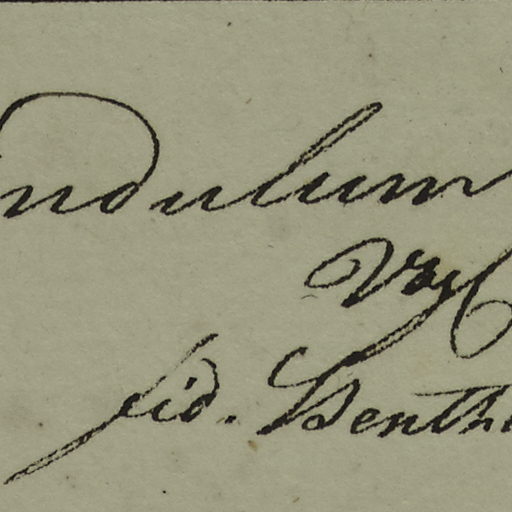 ndulum
Vahl
fid. Benth